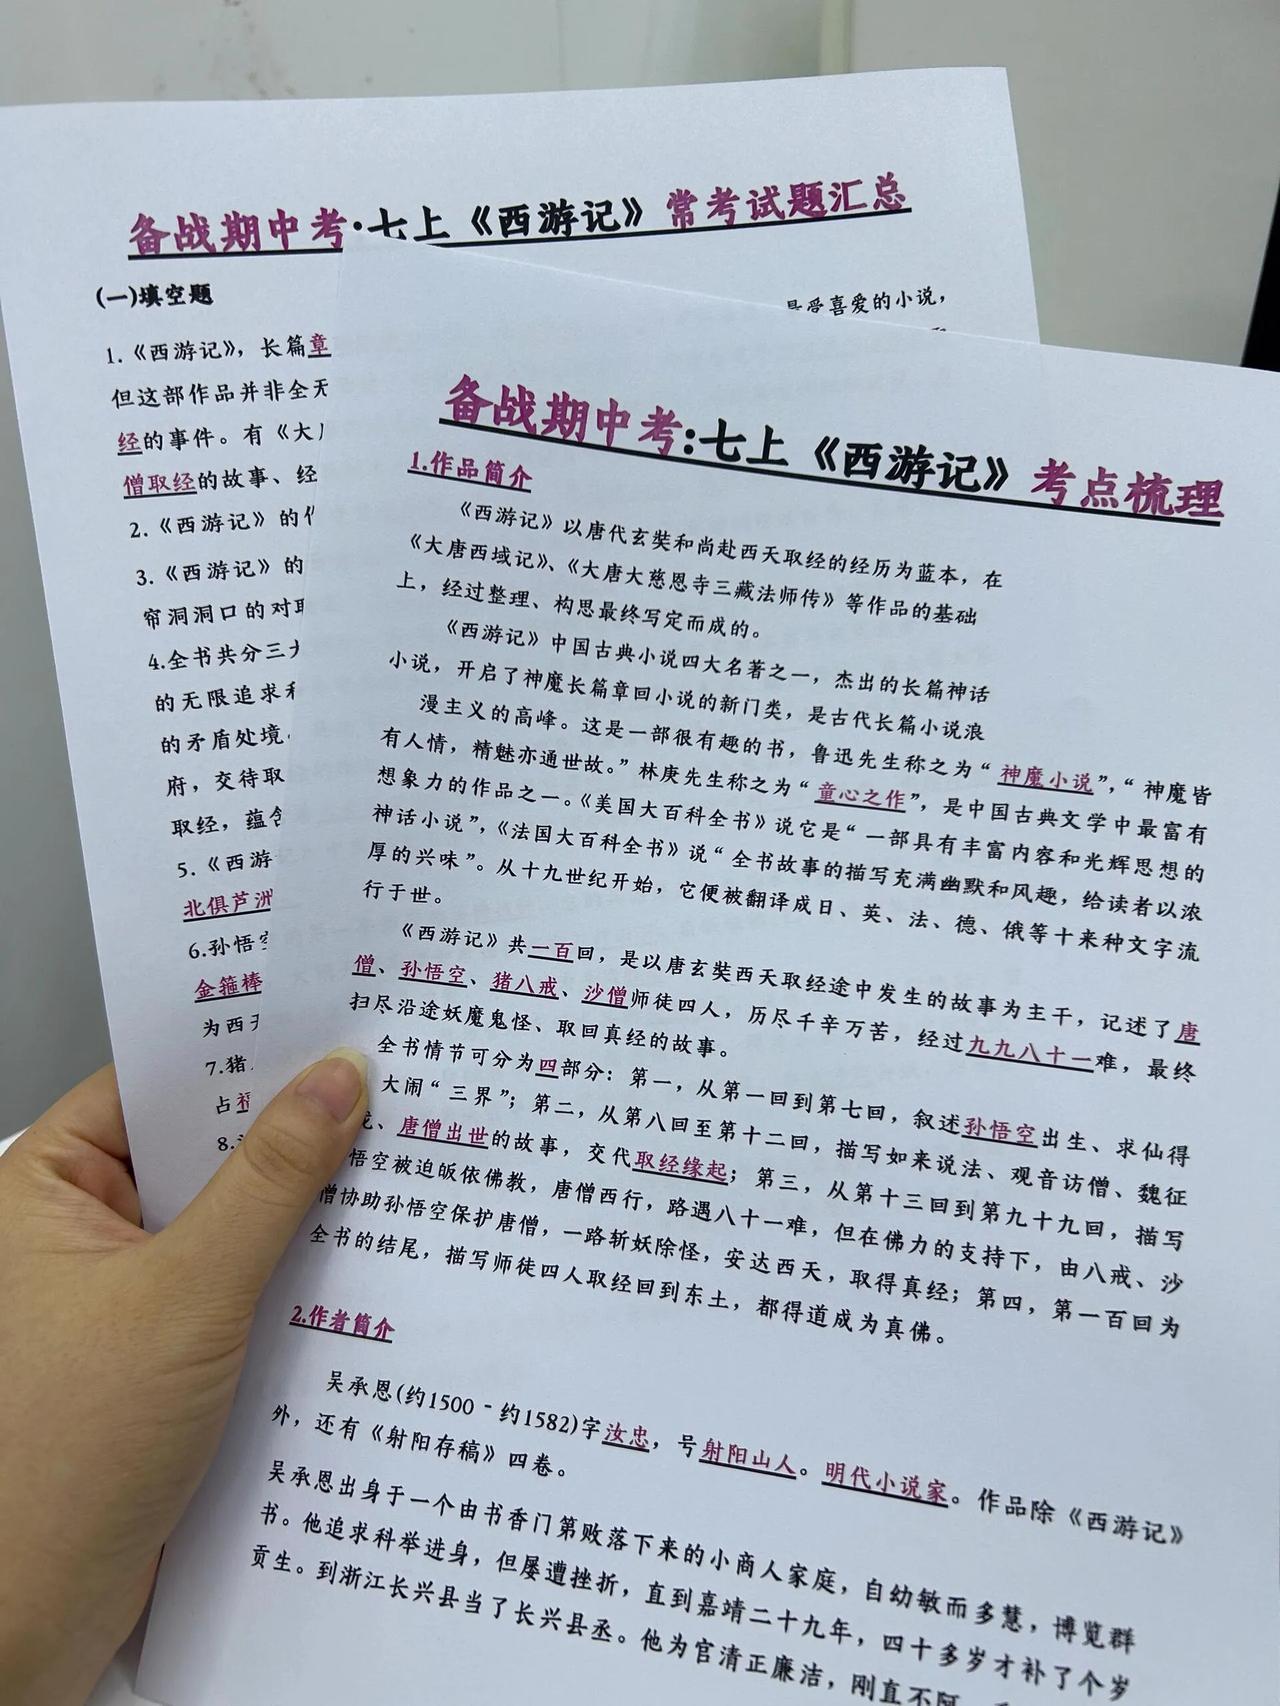 备战期中考:七上《西游记》常考试题汇总
(一)填空题
是受喜爱的小说，
1.《西游记》，长篇章
但这部作品并非全无
经的事件。有《大
僧取经的故事、经
2.《西游记》的
3.《西游记》的
帘洞洞口的对联
4.全书共分三大
的无限追求和
的矛盾处境。
府，交待取
取经，蕴含
5.《西游
北俱芦洲
6.孙悟空
金箍棒
为西天
7.猪
占福
8.
备战期中考:七上《西游记》考点梳理
1.作品简介
《西游记》以唐代玄奘和尚赴西天取经的经历为蓝本，在
《大唐西域记》、《大唐大慈恩寺三藏法师传》等作品的基础
上，经过整理、构思最终写定而成的。
《西游记》中国古典小说四大名著之一，杰出的长篇神话
小说，开启了神魔长篇章回小说的新门类，是古代长篇小说浪
漫主义的高峰。这是一部很有趣的书，鲁迅先生称之为“神魔小说”，“神魔皆
有人情，精魅亦通世故。”林庚先生称之为“童心之作”，是中国古典文学中最富有
想象力的作品之一。《美国大百科全书》说它是“一部具有丰富内容和光辉思想的
神话小说”，《法国大百科全书》说“全书故事的描写充满幽默和风趣，给读者以浓
厚的兴味”。从十九世纪开始，它便被翻译成日、英、法、德、俄等十来种文字流
行于世。
《西游记》共一百回，是以唐玄奘西天取经途中发生的故事为主干，记述了唐
僧、孙悟空、猪八戒、沙僧师徒四人，历尽千辛万苦，经过九九八十一难，最终
扫尽沿途妖魔鬼怪、取回真经的故事。
全书情节可分为四部分：第一，从第一回到第七回，叙述孙悟空出生、求仙得
大闹“三界”；第二，从第八回至第十二回，描写如来说法、观音访僧、魏征
龙、唐僧出世的故事，交代取经缘起；第三，从第十三回到第九十九回，描写
悟空被迫皈依佛教，唐僧西行，路遇八十一难，但在佛力的支持下，由八戒、沙
僧协助孙悟空保护唐僧，一路斩妖除怪，安达西天，取得真经；第四，第一百回为
全书的结尾，描写师徒四人取经回到东土，都得道成为真佛。
2.作者简介
吴承恩(约1500-约1582)字汝忠，号射阳山人。明代小说家。作品除《西游记》
外，还有《射阳存稿》四卷。
吴承恩出身于一个由书香门第败落下来的小商人家庭，自幼敏而多慧，博览群
书。他追求科举进身，但屡遭挫折，直到嘉靖二十九年，四十多岁才补了个岁
贡生。到浙江长兴县当了长兴县丞。他为官清正廉洁，刚直不阿